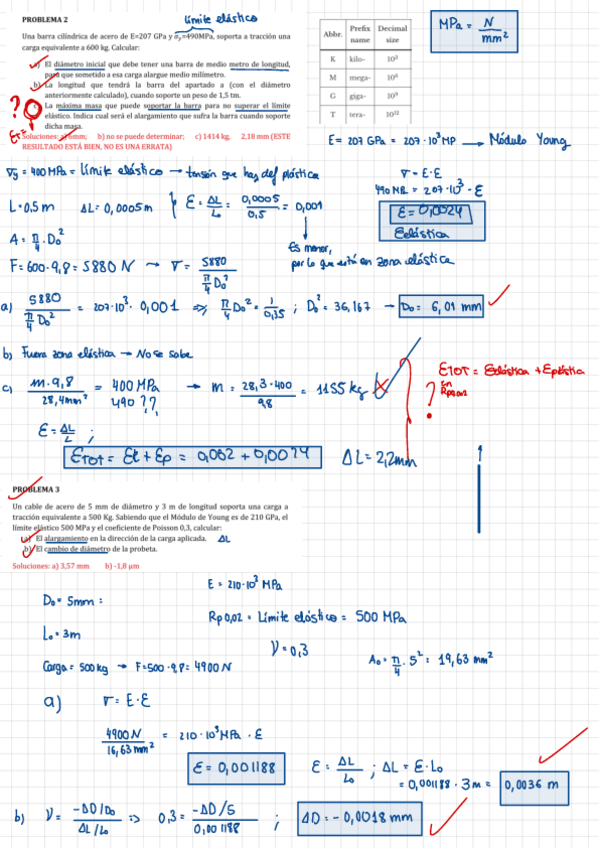 límite elástico
PROBLEMA 2
Una barra cilíndrica de acero de E=207 GPa y σy=490MPa, soporta a tracción una
carga equivalente a 600 kg. Calcular:
a) El diámetro inicial que debe tener una barra de medio metro de longitud,
para que sometido a esa carga alargue medio milímetro.
b) La longitud que tendrá la barra del apartado a (con el diámetro
anteriormente calculado), cuando soporte un peso de 1,5 tm.
c) La máxima masa que puede soportar la barra para no superar el límite
elástico. Indica cual será el alargamiento que sufra la barra cuando soporte
dicha masa.
Soluciones: a) 6mm; b) no se puede determinar; c) 1414 kg. 2,18 mm (ESTE
RESULTADO ESTÁ BIEN, NO ES UNA ERRATA)
?
Abbr. Prefix name Decimal size
K kilo- 10³
M mega- 10⁶
G giga- 10⁹
T tera- 10¹²
MPa = N/mm²
E = 207 GPa = 207·10³ MP → Módulo Young
σy = 400 MPa = límite elástico → tensión que hay def plástica
σ = E·ε
490 MPa = 207·10³·ε
ε = 0,0024
εelástica
L = 0,5 m ΔL = 0,0005 m } ε = ΔL/L = 0,0005/0,5 = 0,001
Es menor,
por lo que está en zona elástica
A = π/4 · D₀²
F = 600·9,8 = 5880 N → σ = 5880/(π/4 D₀²)
a) 5880/(π/4 D₀²) = 207·10³·0,001 ⇒ π/4 D₀² = 1/0,35 ; D₀² = 36,167 → D₀ = 6,01 mm
b) Fuera zona elástica → No se sabe
c) m·9,8/28,4mm² = 400 MPa → m = 28,3·400/9,8 = 1155 kg
490??
εTOT = εelástica + εplástica
en
Rp0,02
?
ε = ΔL/L ;
εTOT = εe + εp = 0,002 + 0,0024
ΔL = 2,2mm
PROBLEMA 3
Un cable de acero de 5 mm de diámetro y 3 m de longitud soporta una carga a
tracción equivalente a 500 Kg. Sabiendo que el Módulo de Young es de 210 GPa, el
límite elástico 500 MPa y el coeficiente de Poisson 0,3, calcular:
a) El alargamiento en la dirección de la carga aplicada. ΔL
b) El cambio de diámetro de la probeta.
Soluciones: a) 3,57 mm b) -1,8 μm
E = 210·10³ MPa
D₀ = 5mm :
Rp0,02 = Límite elástico = 500 MPa
L₀ = 3m
ν = 0,3
Carga = 500kg → F = 500·9,8 = 4900 N
A₀ = π/4 · 5² = 19,63 mm²
a) σ = E·ε
4900 N/16,63 mm² = 210·10³ MPa · ε
ε = 0,001188
ε = ΔL/L₀ ; ΔL = ε·L₀
= 0,001188 · 3 m = 0,0036 m
b) ν = (-ΔD/D₀)/(ΔL/L₀) ⇒ 0,3 = (-ΔD/5)/0,001188 ; ΔD = -0,0018 mm